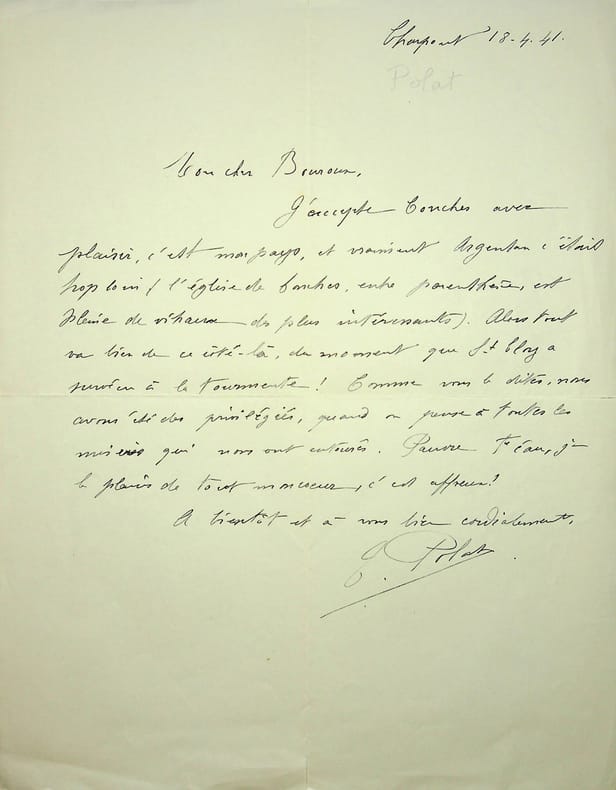 Charpont 18-4.41.
Polat
Mon cher Bouroux,
J'accepte Conches avec
plaisir, c'est mon pays, et vraiment Argentan c'était
trop loin (l'église de Conches, entre parenthèse, est
pleine de vitraux des plus intéressants). Alors tout
va bien de ce côté-là, du moment que St
survécu à la tourmente ! Comme vous le dites, nous
avons été des privilégiés, quand on pense à toutes les
misères qui nous ont entourés. Pauvre je
le plains de tout mon cœur, c'est affreux !
A bientôt et à vous bien cordialement.
Polat